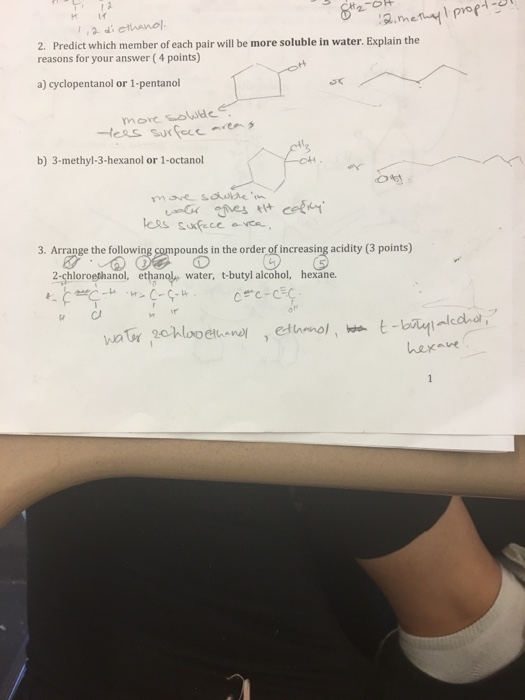 CH2-OH
1,2 diethanol.
2. methyl prop-1-ol
2. Predict which member of each pair will be more soluble in water. Explain the
reasons for your answer ( 4 points)
OH
a) cyclopentanol or 1-pentanol
or
more soluble
less surface area
CH3
b) 3-methyl-3-hexanol or 1-octanol
OH
or
OH
more soluble in
water gives H+
less surface area.
3. Arrange the following compounds in the order of increasing acidity (3 points)
2 3 1 4 5
2-chloroethanol, ethanol, water, t-butyl alcohol, hexane.
C C-H H-C-C-H C-C-C
H Cl H H OH
water, 2chloroethanol, ethanol, t-butylalcohol,
hexane
1